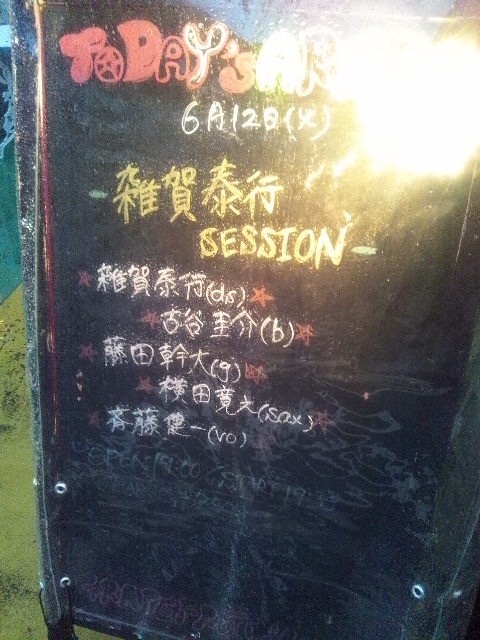 TODAY'S AR
6月12日(火)
雑賀泰行
SESSION
雑賀泰行(ds)
古谷圭介(b)
藤田幹大(g)
横田寛之(sax)
斉藤健一(vo)
OPEN 19:00 / START 19:33